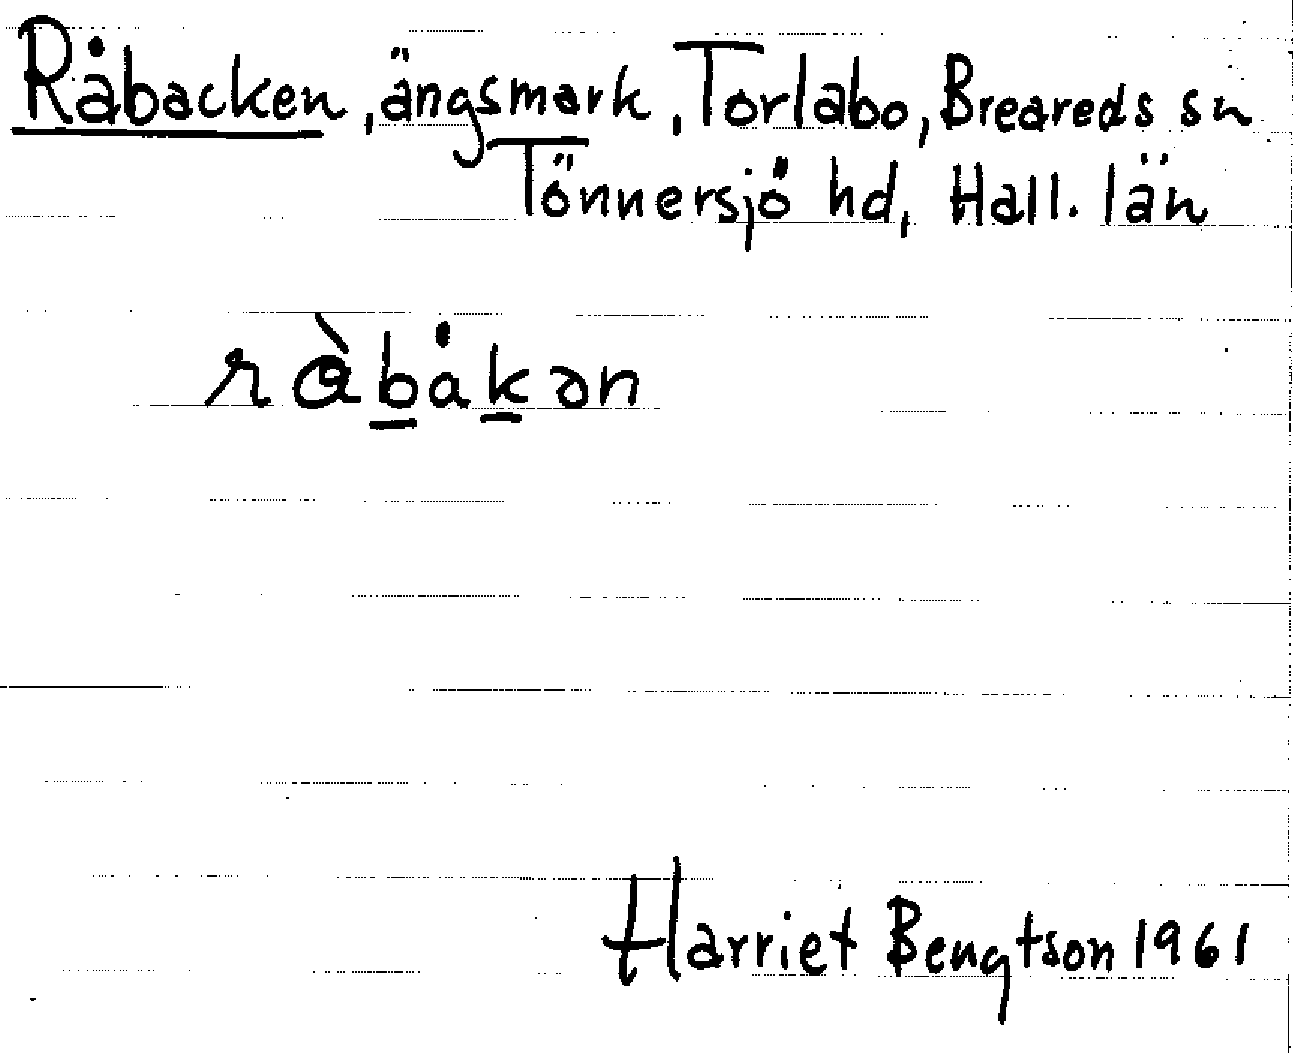 Råbacken, ängsmark, Torlabo, Breareds sn
Tönnersjö hd, Hall. län
ràbåkən
Harriet Bengtson 1961